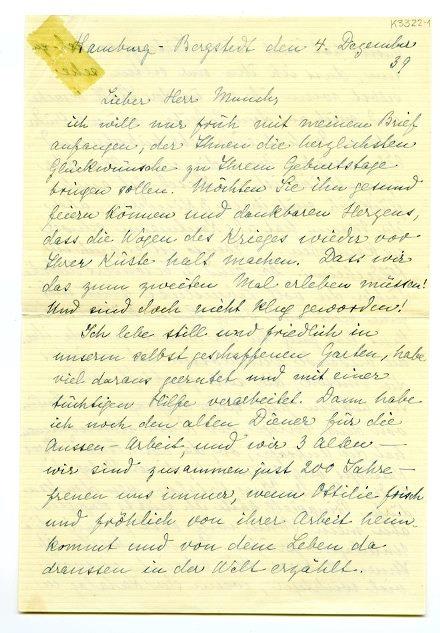 K3322-1
Hamburg-Bergstedt den 4. Dezember
39
Lieber Herr Munch,
ich will nur früh mit meinem Brief
anfangen, der Ihnen die herzlichsten
Glückwünsche zu Ihrem Geburtstage
bringen sollen. Möchten Sie ihn gesund
feiern können und dankbaren Herzens,
dass die Wogen des Krieges wieder vor
Ihrer Küste halt machen. Dass wir
das zum zweiten Mal erleben müssen!
Und sind doch nicht klug geworden!
Ich lebe still und friedlich in
unserm selbstgeschaffenen Garten, habe
viel daraus geerntet und mit einer
tüchtigen Hilfe verarbeitet. Dann habe
ich noch den alten Diener für die
Aussen-Arbeit, und wir 3 Alten –
wir sind zusammen just 200 Jahre –
freuen uns immer, wenn Ottilie frisch
und fröhlich von ihrer Arbeit heim
kommt und von dem Leben da
draussen in der Welt erzählt.